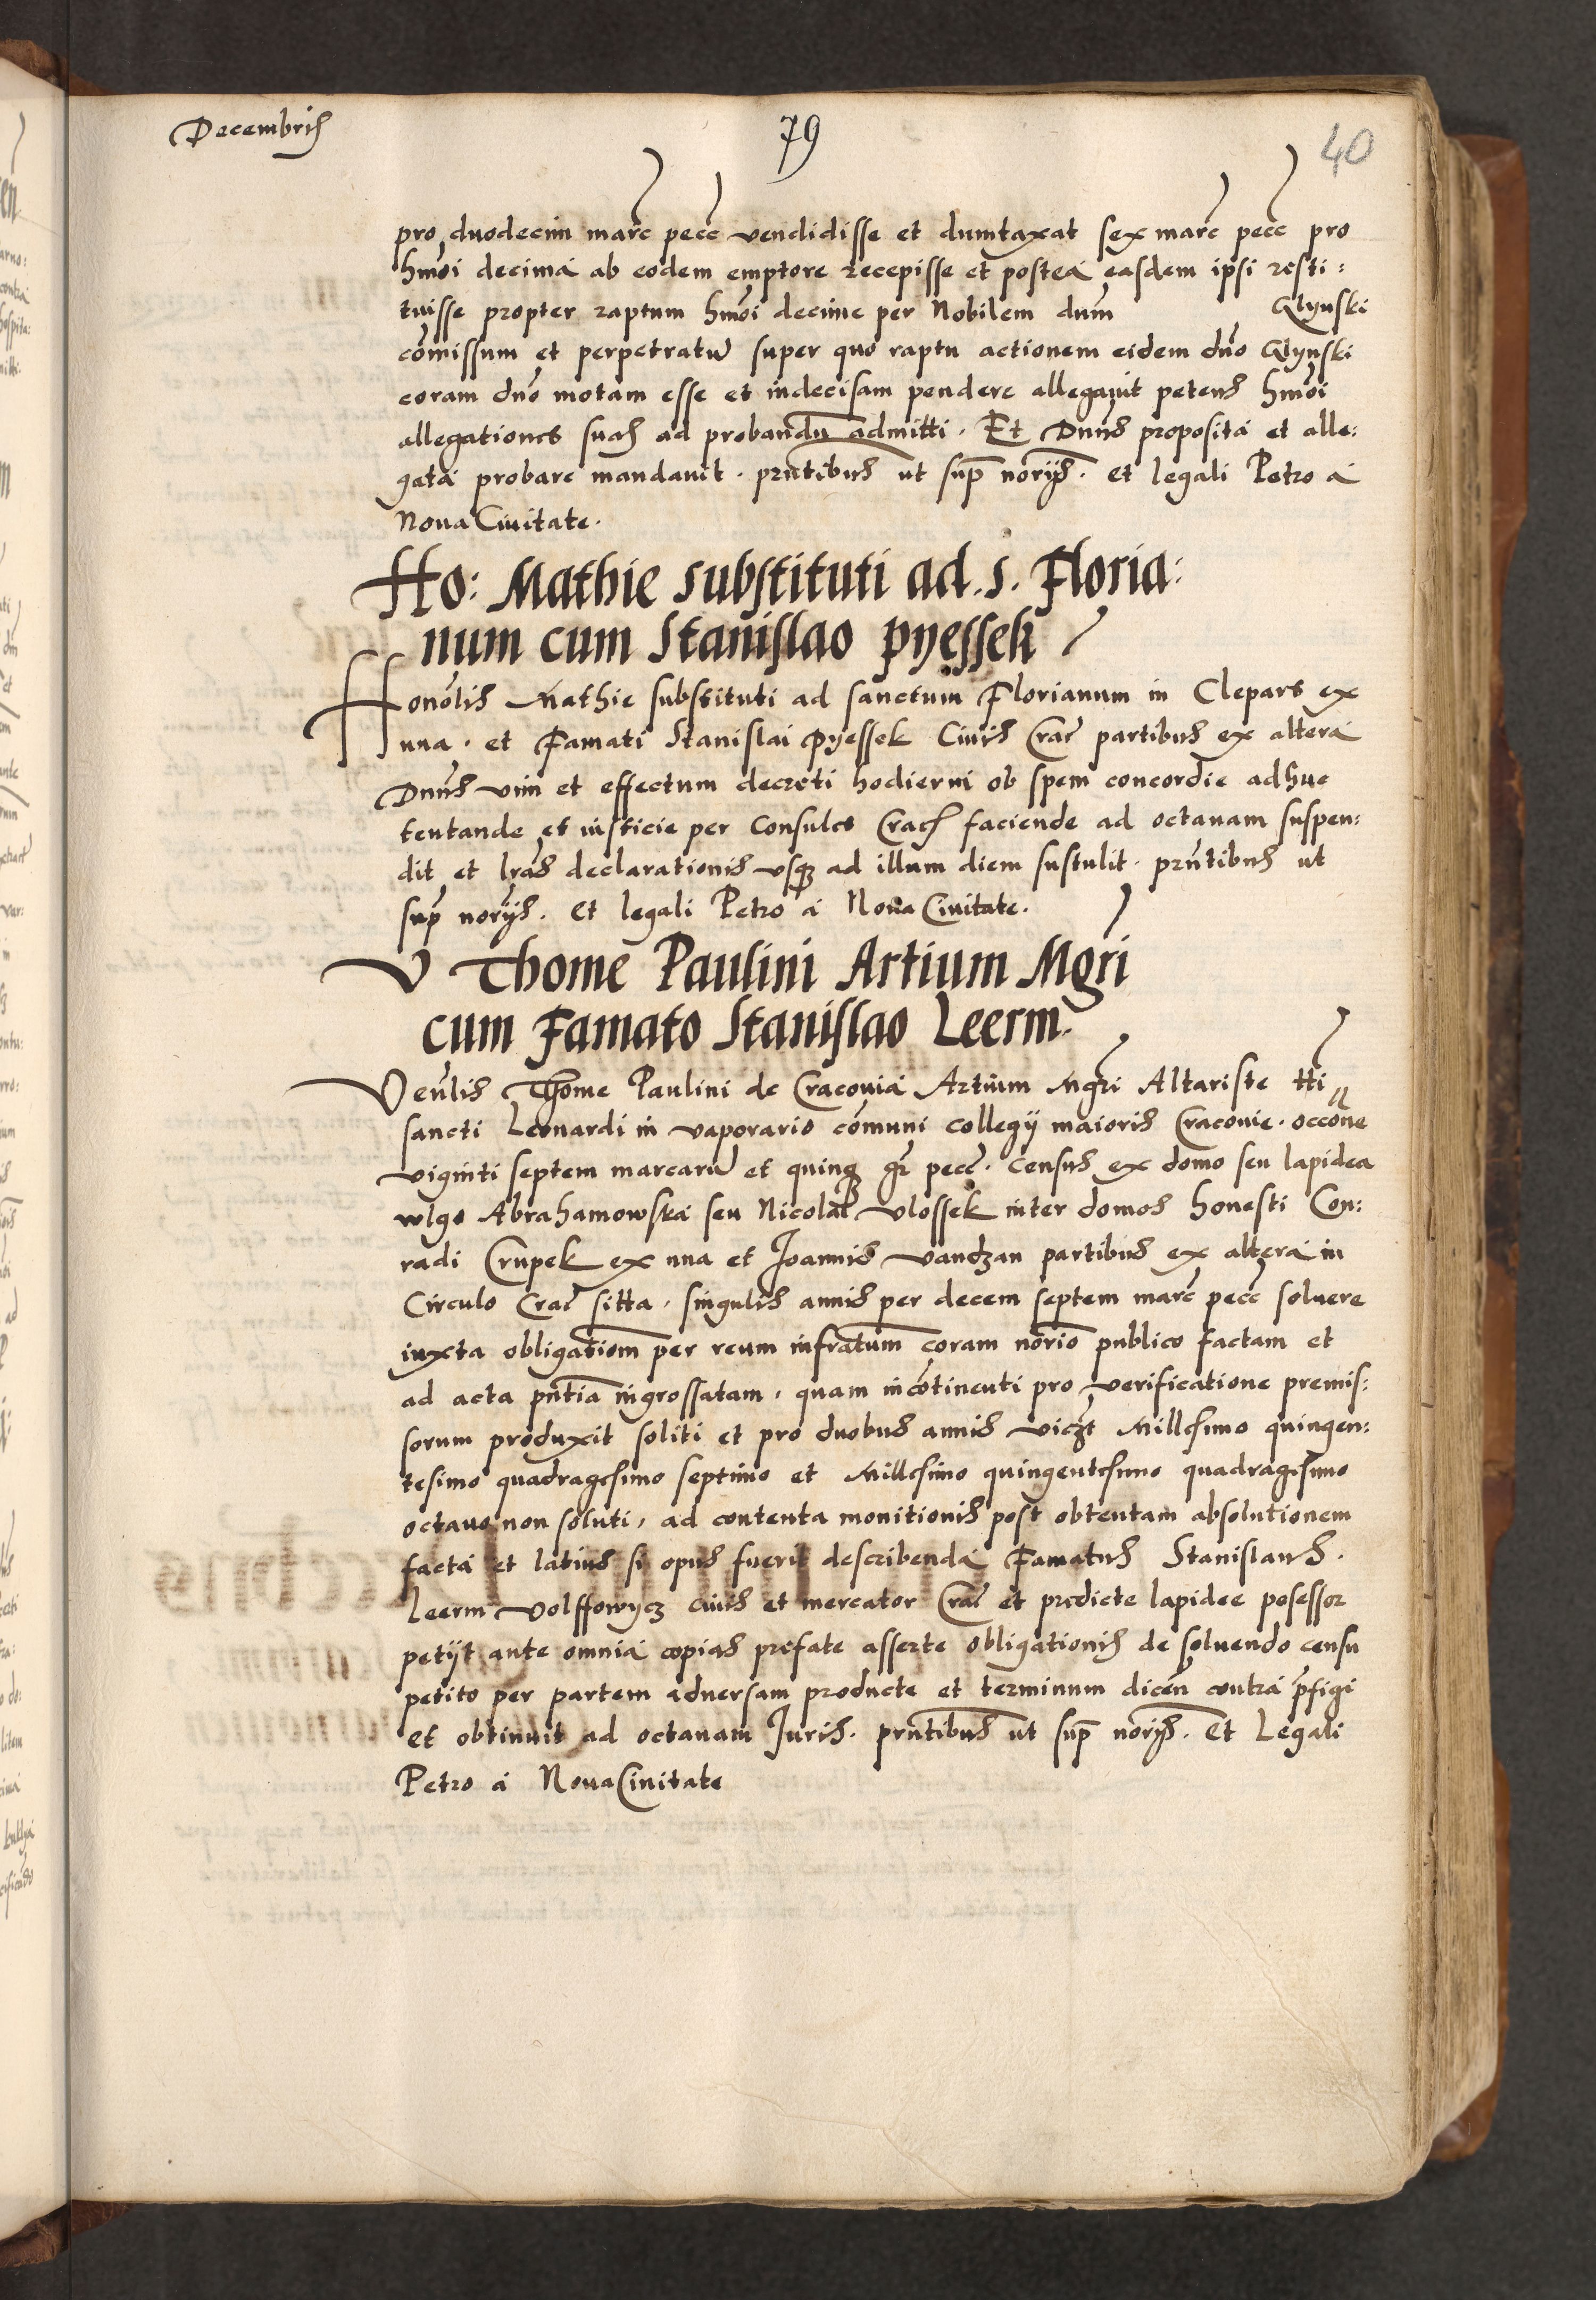 Decembris 79 40
pro duodecim marc pecc vendidisse et dumtaxat sex marc pecc pro
hmoi decima ab eodem emptore recepisse et postea easdem ipsi resti:
tuisse propter raptum hmoi decime per Nobilem dum Glynski
comissum et perpetratu super quo raptu actionem eidem dno Glynski
coram dno motam esse et indecisam pendere allegavit petens hmoi
allegationes suas ad probandu admitti. Et Dnus proposita et alle:
gata probare mandavit. pntibus ut sup norijs. et legali Petro a
Nova Civitate.
Ho: Mathie substituti ad .S. Floria:
num cum Stanislao Pyessek
Honolis Mathie substituti ad sanctum Florianum in Clepars ex
una. et Famati Stanislai Pyessek Civis Crac partibus ex altera
Dnus vim et effectum decreti hodierni ob spem concordie adhuc
tentande et iusticie per Consules Crac faciende ad octavam suspen:
dit et lras declarationis usq ad illum diem sustulit. prntibus ut
sup norijs. Et legali Petro a Nova Civitate.
V Thome Paulini Artium Mgri
cum Famato Stanislao Leerm.
Venlis Thome Paulini de Cracovia Artium Mgri Altariste tti
sancti Leonardi in vaporario comuni collegij maioris Cracovie. occone
viginti septem marcaru et quinq gr pecc. census ex domo seu lapidea
wlgo Abrahamowska seu Nicolai Vlossek inter domos honesti Con:
radi Crupek ex una et Joannis Vandzan partibus ex altera in
Circulo Crac sitta. singulis annis per decem septem marc pecc solvere
iuxta obligationm per reum infratum coram norio publico factam et
ad acta pntia ingrossatam. quam incotinenti pro verificatione premis:
sorum produxit soliti et pro duobus annis viczt Millesimo quingen:
tesimo quadragesimo septimo et Millesimo quingentesimo quadragesimo
octavo non soluti, ad contenta monitionis post obtentam absolutionem
facta et latius si opus fuerit describenda Famatus Stanislaus.
Leerm Volffowycz civis et mercator Crac et predicte lapidee posessor
petijt ante omnia copias prefate asserte obligationis de solvendo censu
petito per partem adversam producte et terminum dicen contra pfigi
et obtinuit ad octavam Juris. prntibus ut sup norijs. Et Legali
Petro a Nova Civitate